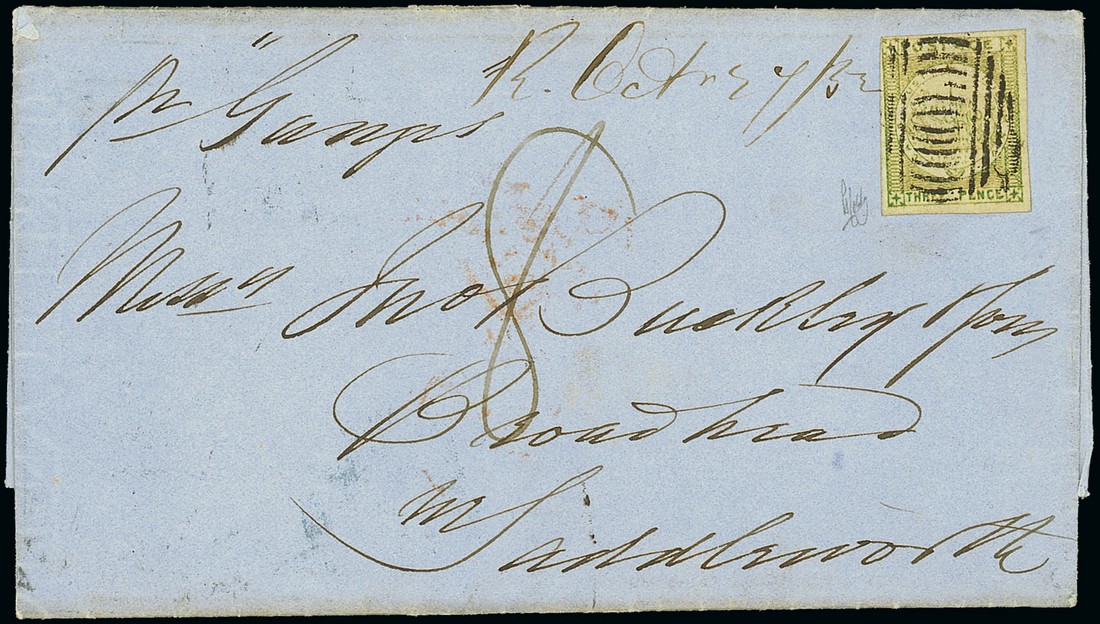 pr "Ganges
R. Octr 27/52
POSTAGE
THREE PENCE
8
Messrs Jno Buckley & Sons
Broadhead
nr Saddleworth